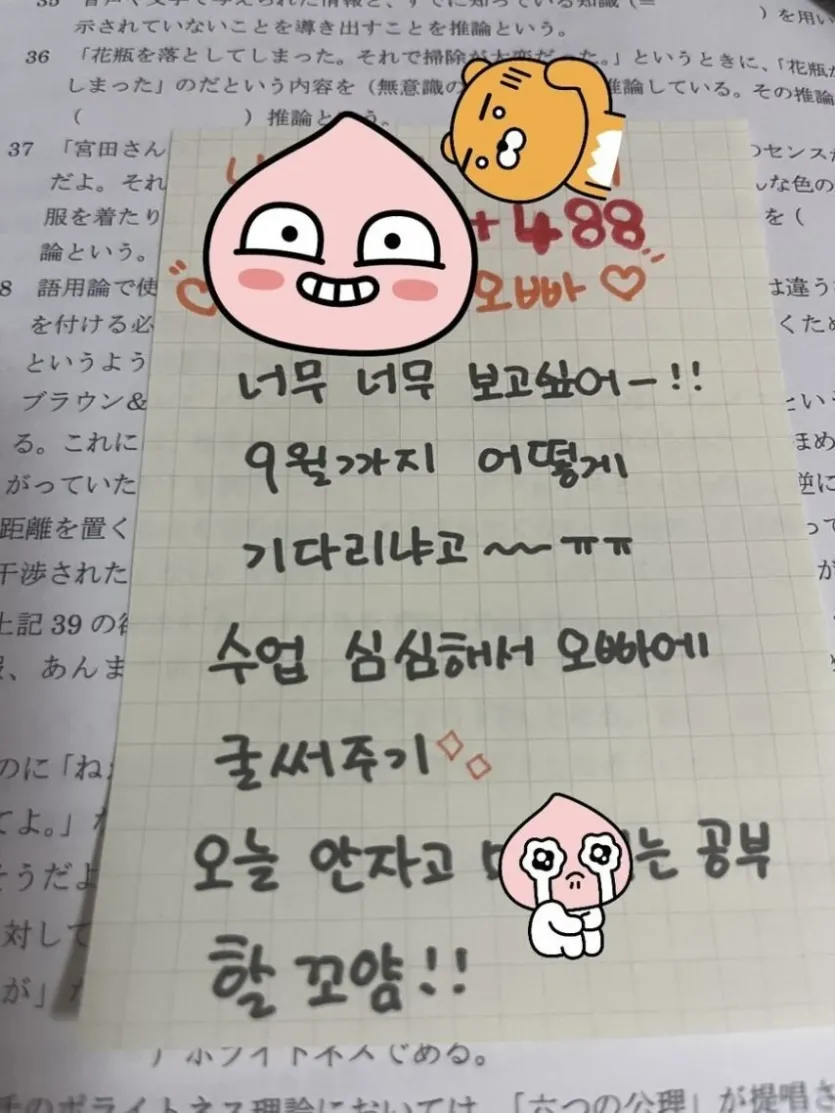 示されていないことを導き出すことを推論という。
36 「花瓶を落としてしまった。それで掃除が大変だった。」というときに、「花瓶が
しまった」のだという内容を（無意識の 推論している。その推論
（ ）推論という。
37 「宮田さん のセンスが
だよ。それ んな色の
服を着たり を（
論という。
+488
오빠 ♡
너무 너무 보고싶어-!!
9월까지 어떻게
기다리냐고 ~~ ㅠㅠ
수업 심심해서 오빠에
글써주기
오늘 안자고 는 공부
할 꼬얌!!
8 語用論で使 は違う
を付ける必 くため
というよう
ブラウン& という
る。これに まめ
がっていた 逆に
距離を置く って
干渉された が
上記 39 の
、あんま
のに「ね
てよ。」
そうだよ
対して
が」
手のポライトネス理論においては、「六つの公理」が提唱さ